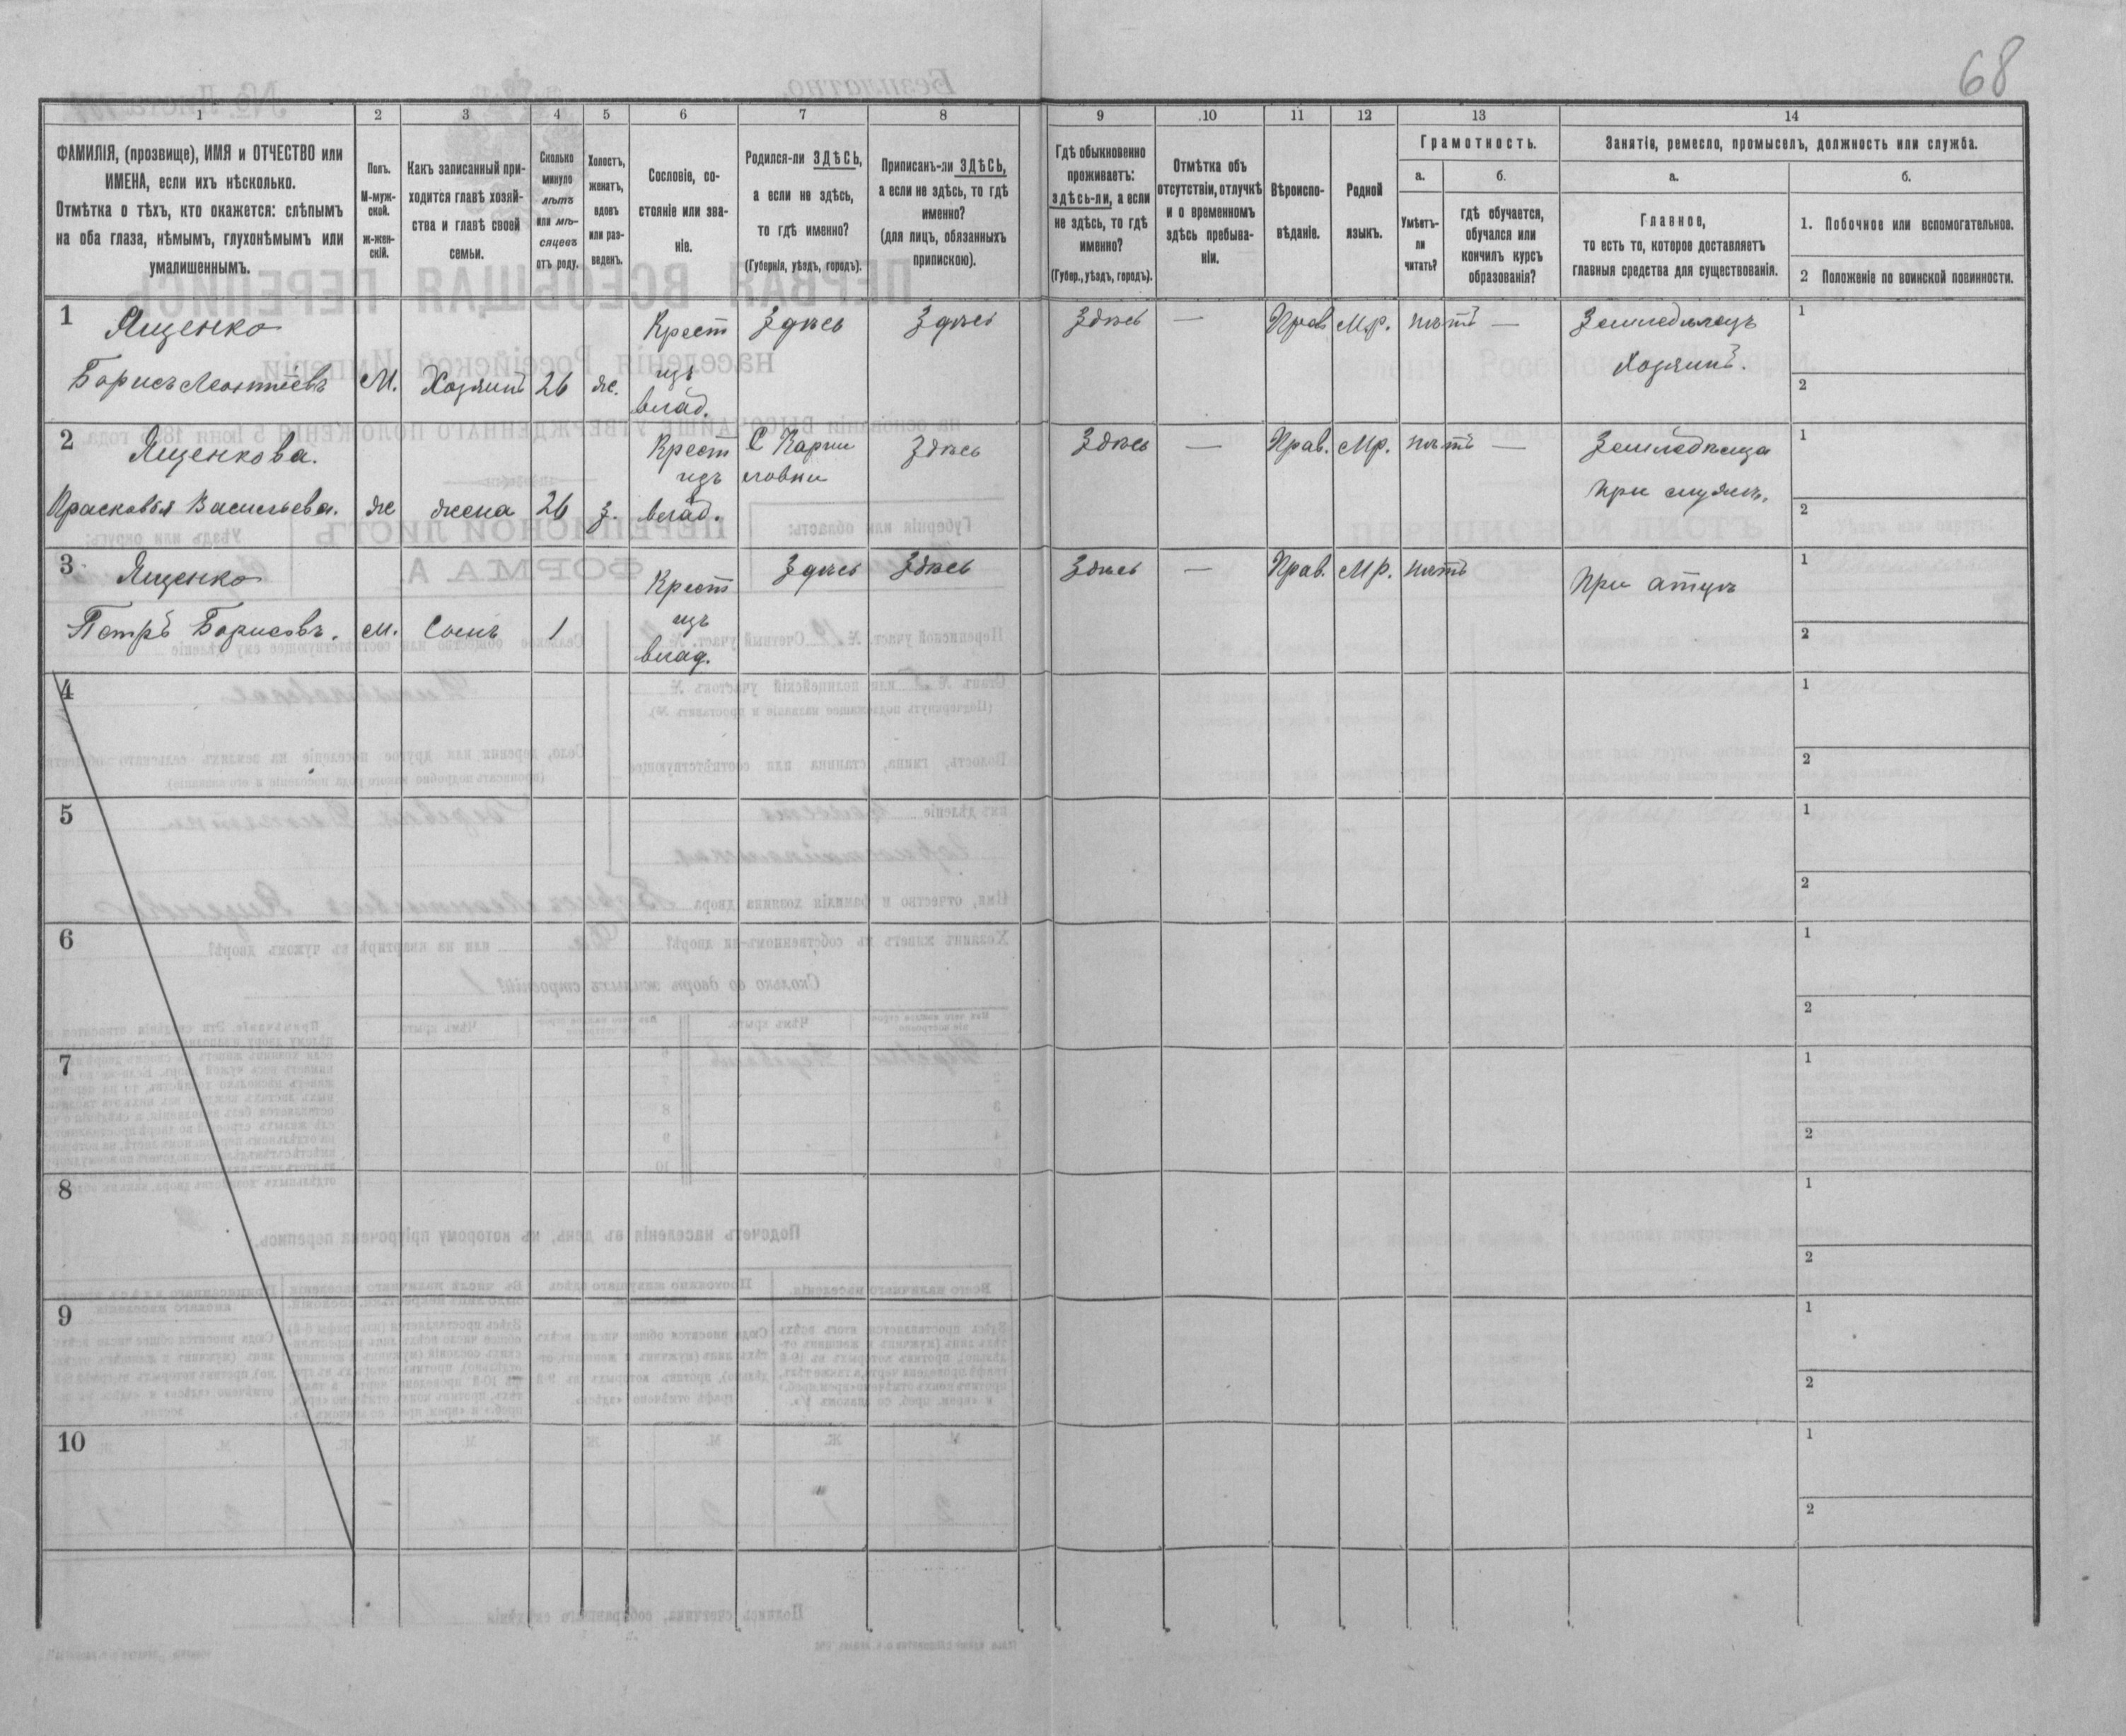 68
1 2 3 4 5 6 7 8 9 .10 11 12 13 14
ФАМИЛІЯ, (прозвище), ИМЯ и ОТЧЕСТВО или
ИМЕНА, если ихъ нѣсколько.
Отмѣтка о тѣхъ, кто окажется: слѣпымъ
на оба глаза, нѣмымъ, глухонѣмымъ или
умалишеннымъ.
Полъ.
М-муж-
ской.
ж-жен-
скій.
Какъ записанный при-
ходится главѣ хозяй-
ства и главѣ своей
семьи.
Сколько
минуло
лѣтъ
или мѣ-
сяцевъ
отъ роду.
Холостъ,
женатъ,
вдовъ
или раз-
веденъ.
Сословіе, со-
стояніе или зва-
ніе.
Родился-ли ЗДѢСЬ,
а если не здѣсь,
то гдѣ именно?
(Губернія, уѣздъ, городъ).
Приписанъ-ли ЗДѢСЬ,
а если не здѣсь, то гдѣ
именно?
(для лицъ, обязанныхъ
припискою).
Гдѣ обыкновенно
проживаетъ:
здѣсь-ли, а если
не здѣсь, то гдѣ
именно?
(Губер., уѣздъ, городъ).
Отмѣтка объ
отсутствіи, отлучкѣ
и о временномъ
здѣсь пребыва-
ніи.
Вѣроиспо-
вѣданіе.
Родной
языкъ.
Грамотность.
а.
Умѣетъ-
ли
читать?
б.
гдѣ обучается,
обучался или
кончилъ курсъ
образованія?
Занятіе, ремесло, промыселъ, должность или служба.
а.
Главное,
то есть то, которое доставляетъ
главныя средства для существованія.
б.
1. Побочное или вспомогательное.
2 Положеніе по воинской повинности.
1 Ященко Крест Здѣсь Здѣсь Здѣсь — Прав М.р. нѣтъ — Земледѣлецъ 1
Борисъ Леонтіевъ М. Хозяинъ 26 ж. изъ Хозяинъ. 2
влад.
2 Ященкова. Крест С Карпи Здѣсь Здѣсь — Прав. Мр. нѣтъ — 1
изъ ловки
Прасковья Васильева. ж жена 26 з. влад. при мужѣ. 2
3 Ященко Крест Здѣсь Здѣсь Здѣсь — Прав. Мр. нѣтъ При отцѣ 1
Петръ Борисовъ. м. Сынъ 1 изъ 2
влад.
4 1
2
5 1
2
6 1
2
7 1
2
8 1
2
9 1
2
10 1
2